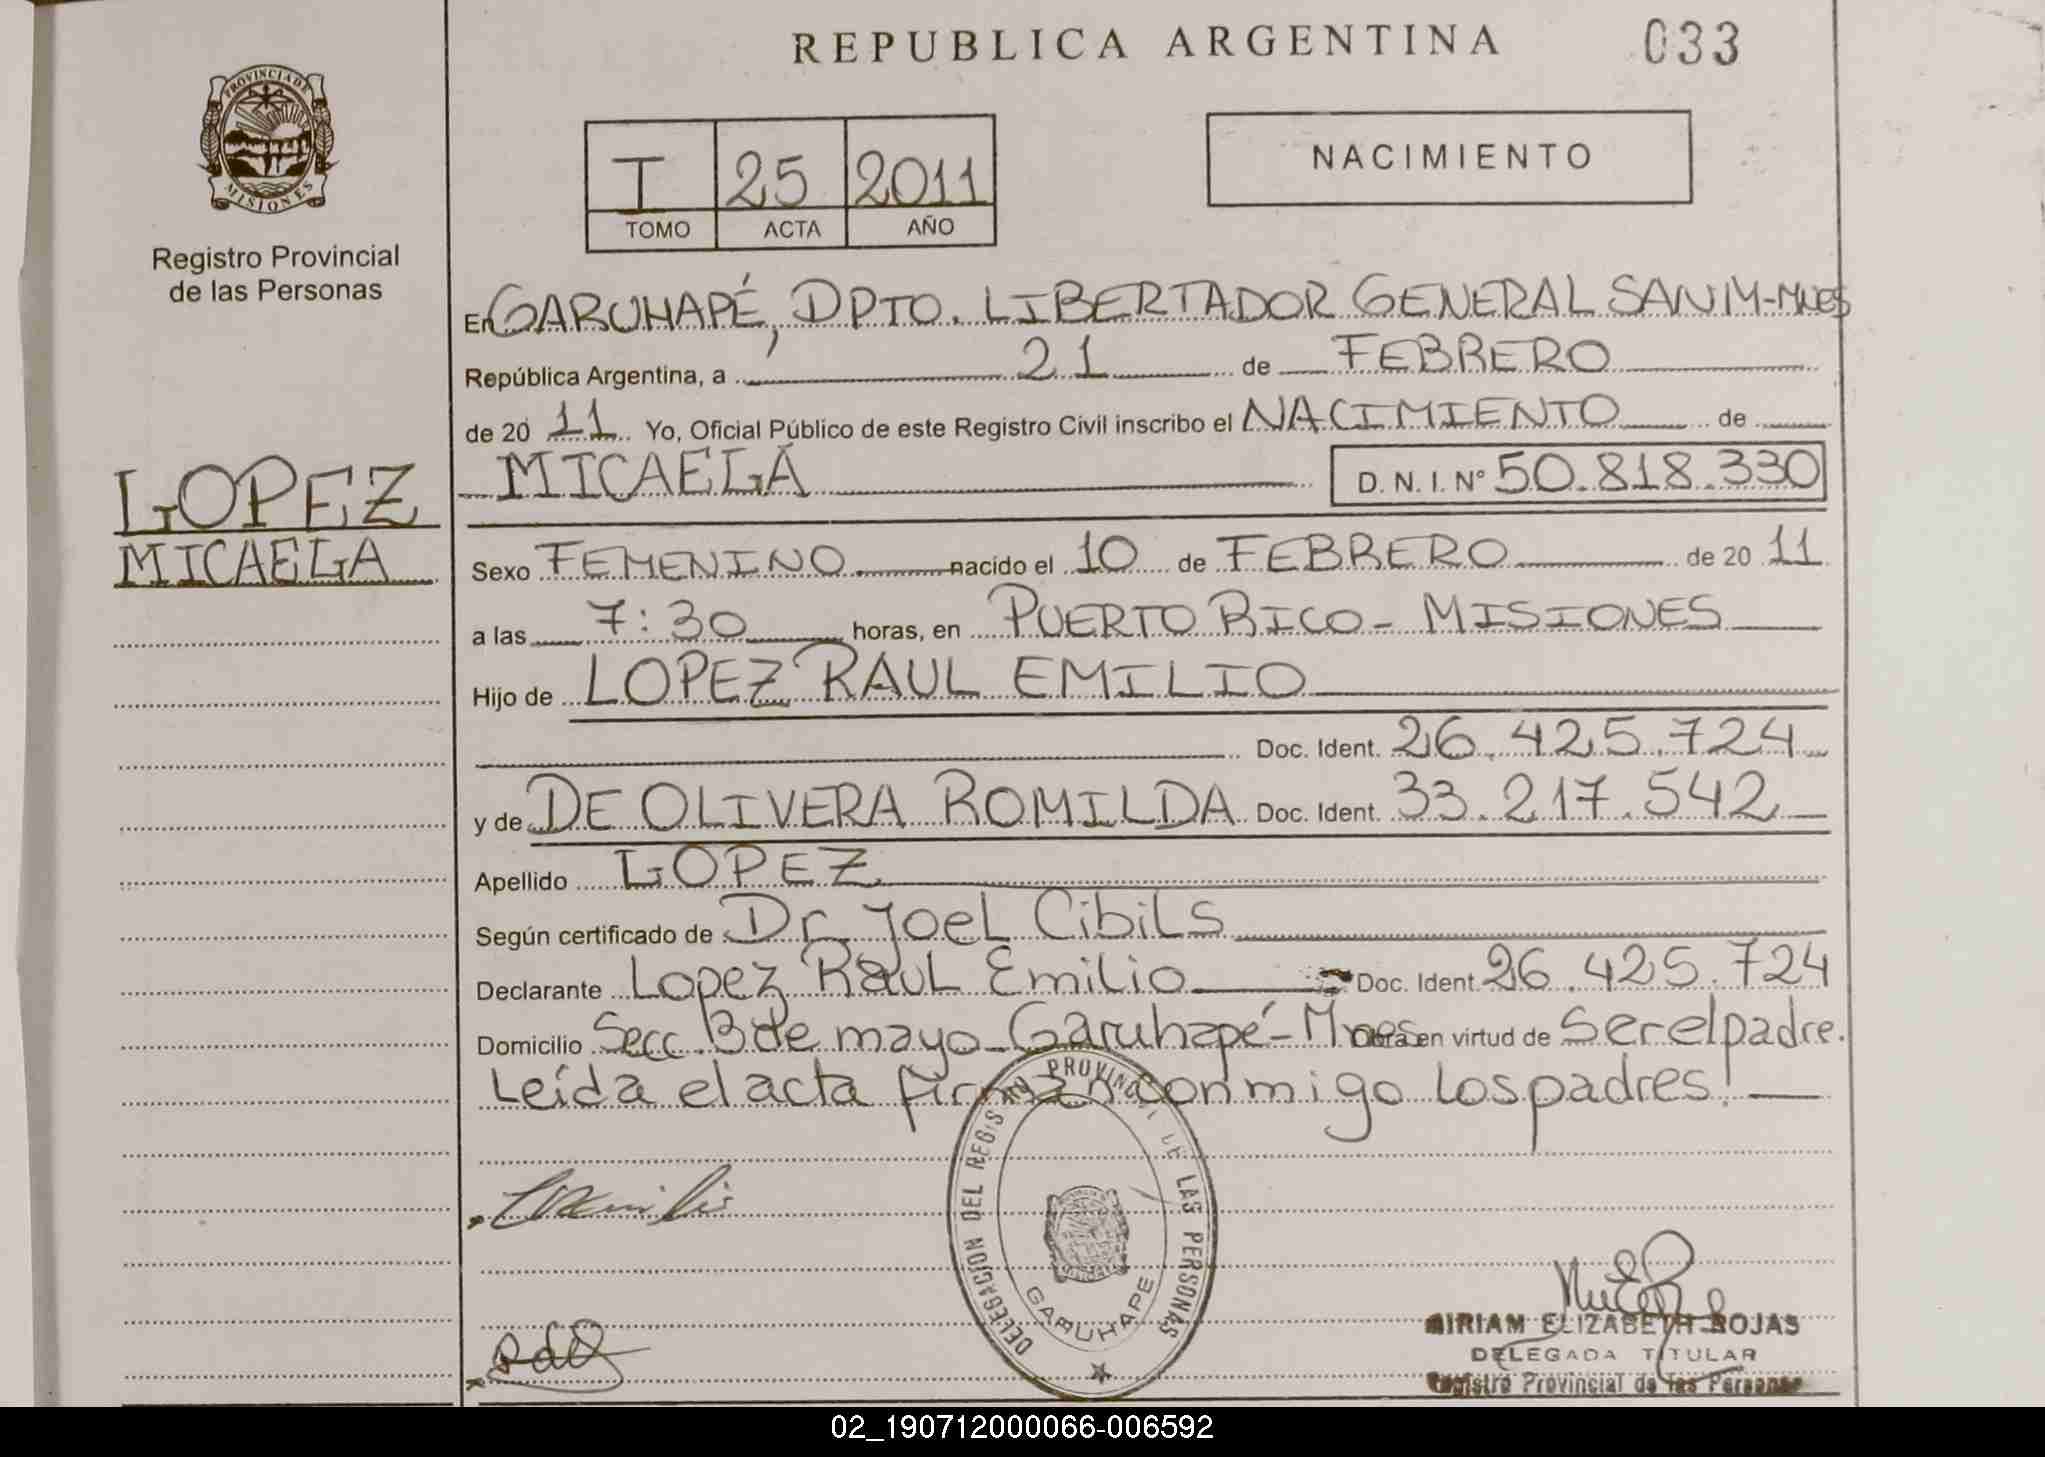 REPUBLICA ARGENTINA
033
PROVINCIA DE
MISIONES
Registro Provincial
de las Personas
T 25 2011
TOMO ACTA AÑO
NACIMIENTO
LOPEZ
MICAELA
En GARUHAPÉ, DPTO. LIBERTADOR GENERAL SAN M-MNES
República Argentina, a 21 de FEBRERO
de 20 11 Yo, Oficial Público de este Registro Civil inscribo el NACIMIENTO de
MICAELA D. N. I. Nº 50.818.330
Sexo FEMENINO nacido el 10 de FEBRERO de 20 11
a las 7:30 horas, en PUERTO RICO - MISIONES
Hijo de LOPEZ RAUL EMILIO
Doc. Ident. 26.425.724
y de DE OLIVERA ROMILDA Doc. Ident. 33.217.542
Apellido LOPEZ
Según certificado de Dr. Joel Cibils
Declarante Lopez Raul Emilio Doc. Ident. 26.425.724
Domicilio Secc. 3 de mayo - Garuhapé - Mnes Obra en virtud de ser el padre.
Leída el acta firman conmigo los padres!
DELEGACION DEL REGISTRO PROVINCIAL DE LAS PERSONAS
GARUHAPE
MIRIAM ELIZABETH ROJAS
DELEGADA TITULAR
Registro Provincial de las Personas
02_190712000066-006592